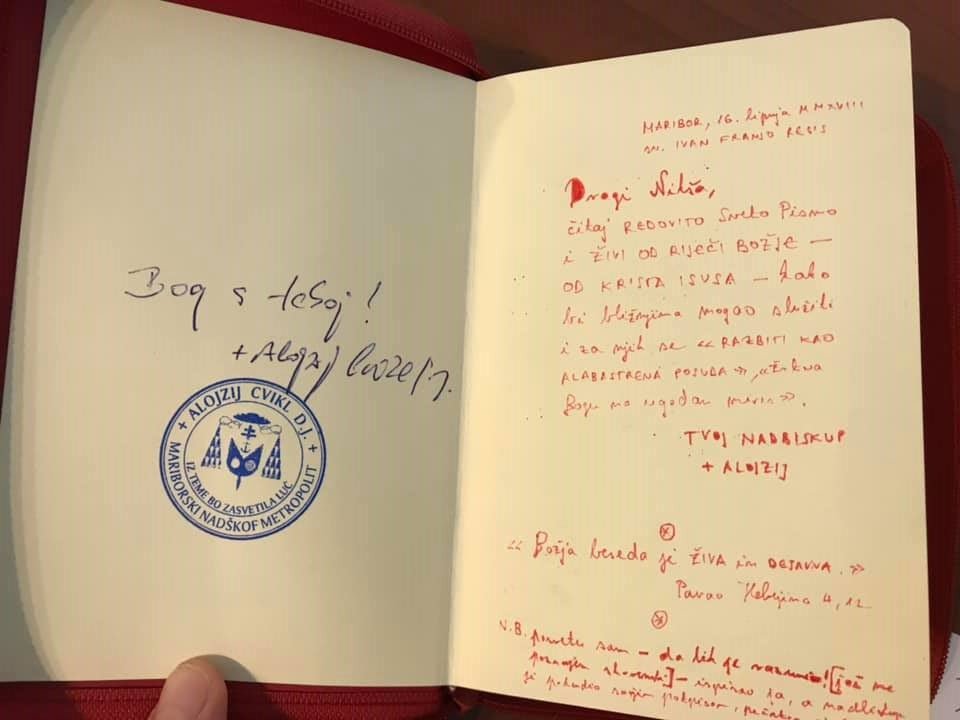 Bog s teboj!
+ Alojzij Cvikl D.J.
+ ALOJZIJ CVIKL D.J. +
MARIBORSKI NADŠKOF METROPOLIT
IZ TEME BO ZASVETILA LUČ
MARIBOR, 16. lipnja MMXVIII
sv. IVAN FRANJO REGIS
Dragi Nikša,
čitaj REDOVITO Sveto Pismo
i ŽIVI OD RIJEČI BOŽJE —
OD KRISTA ISUSA — kako
bi bližnjima mogao služiti
i za njih se «RAZBITI KAO
ALABASTRENA POSUDA», «žrtva
Bogu na ugodan miris».
TVOJ NADBISKUP
+ ALOJZIJ
« Božja beseda je ŽIVA in DEJAVNA. »
Pavao Hebrejima 4, 12
N.B. sam — da lik je [još ne
poznajem slovenski] — ispisao ja, a
je svojim potpisom,